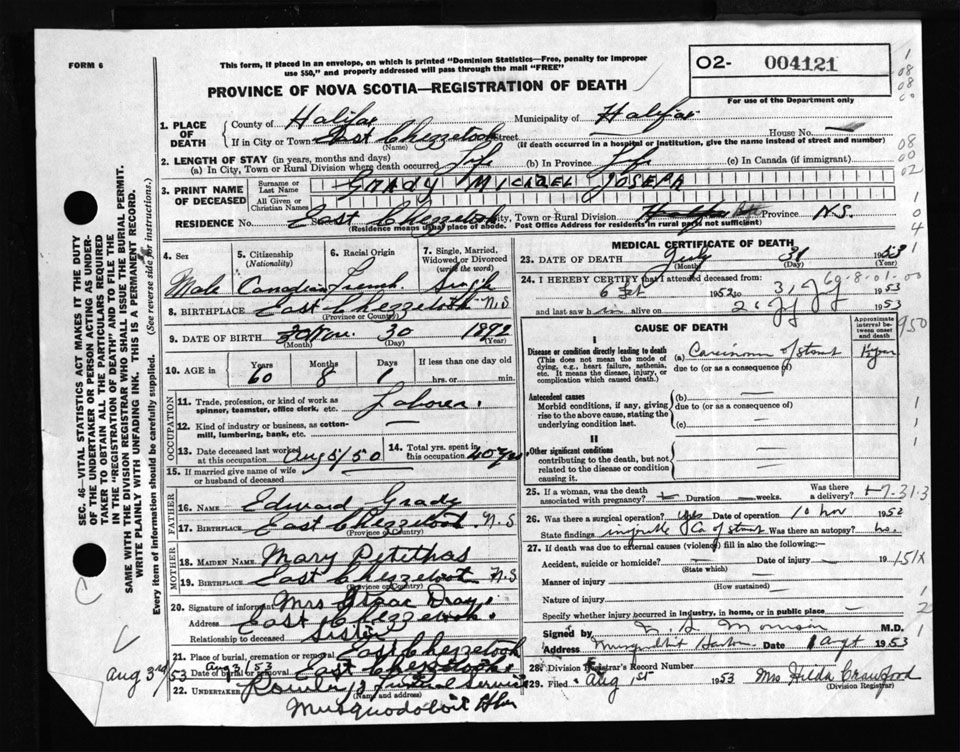 FORM 6
This form, if placed in an envelope, on which is printed "Dominion Statistics—Free, penalty for improper
use $50," and properly addressed will pass through the mail "FREE"
O2- 004121
For use of the Department only
PROVINCE OF NOVA SCOTIA—REGISTRATION OF DEATH
1. PLACE OF DEATH
County of Halifax Municipality of Halifax
If in City or Town East Chezzetcook Street House No. —
(Name) (If death occurred in a hospital or institution, give the name instead of street and number)
2. LENGTH OF STAY (in years, months and days)
(a) In City, Town or Rural Division where death occurred Life (b) In Province Life (c) In Canada (if immigrant)
3. PRINT NAME OF DECEASED
Surname or Last Name GRADY MICHAEL JOSEPH
All Given or Christian Names
RESIDENCE No. East Chezzetcook City, Town or Rural Division Halifax Province N.S.
(Residence means usual place of abode. Post Office Address for residents in rural parts not sufficient)
4. Sex
Male
5. Citizenship
(Nationality)
Canadian
6. Racial Origin
French
7. Single, Married, Widowed or Divorced
(write the word)
Single
8. BIRTHPLACE East Chezzetcook N.S
(Province or County)
9. DATE OF BIRTH Nov. 30 1892
(Month) (Day) (Year)
10. AGE in
Years Months Days If less than one day old
60 8 1 hrs. or min.
OCCUPATION
11. Trade, profession, or kind of work as
spinner, teamster, office clerk, etc. Laborer.
12. Kind of industry or business, as cotton-
mill, lumbering, bank, etc. —
13. Date deceased last worked
at this occupation Aug 5/50
14. Total yrs. spent in
this occupation 40 yrs
15. If married give name of wife
or husband of deceased
FATHER
16. NAME Edward Grady
17. BIRTHPLACE East Chezzetcook N.S
(Province or County)
MOTHER
18. MAIDEN NAME Mary Petitpas
19. BIRTHPLACE East Chezzetcook N.S
(Province or Country)
20. Signature of informant Mrs Isaac
Address East Chezzetcook.
Relationship to deceased Sister
21. Place of burial, cremation or removal East Chezzetcook
Aug 3/53
Date of burial or removal East Chezzetcook
22. UNDERTAKER Funeral Service
(Name and address)
Musquodoboit Hbr
Aug 3rd
/53
MEDICAL CERTIFICATE OF DEATH
23. DATE OF DEATH July 31 1953
(Month) (Day)
24. I HEREBY CERTIFY that I attended deceased from
6 Feb 1952 to 31 July 1953
and last saw him alive on 1953
69-8-01-00
950
CAUSE OF DEATH
Approximate interval between onset and death
I
Disease or condition directly leading to death
(This does not mean the mode of
dying, e.g., heart failure, asthenia,
etc. It means the disease, injury, or
complication which caused death.)
(a) Carcinoma of stomach
due to (or as a consequence of)
Antecedent causes
Morbid conditions, if any, giving
rise to the above cause, stating the
underlying condition last.
(b) —
due to (or as a consequence of)
(c) —
II
Other significant conditions
contributing to the death, but not
related to the disease or condition
causing it.
25. If a woman, was the death
associated with pregnancy? — Duration — weeks. Was there
a delivery?
7-31-3
26. Was there a surgical operation? yes Date of operation 10 Nov 1952
State findings inoperable Ca of stomach Was there an autopsy? no.
27. If death was due to external causes (violence) fill in also the following:—
Accident, suicide or homicide? — Date of injury — 19
(State which)
151X
Manner of injury —
(How sustained)
Nature of injury —
Specify whether injury occurred in industry, in home, or in public place —
Signed by M.D.
Address Musquodoboit Harbour Date 1 Augt 1953
28. Division Registrar's Record Number
29. Filed Aug 1st 1953 Mrs Hilda Crawford
(Division Registrar)
SEC. 46—VITAL STATISTICS ACT MAKES IT THE DUTY
OF THE UNDERTAKER OR PERSON ACTING AS UNDER-
TAKER TO OBTAIN ALL THE PARTICULARS REQUIRED
IN THE "REGISTRATION OF DEATH" AND TO FILE THE
SAME WITH THE DIVISION REGISTRAR WHO SHALL ISSUE THE BURIAL PERMIT.
WRITE PLAINLY WITH UNFADING INK. THIS IS A PERMANENT RECORD.
Every item of information should be carefully supplied. (See reverse side for instructions.)